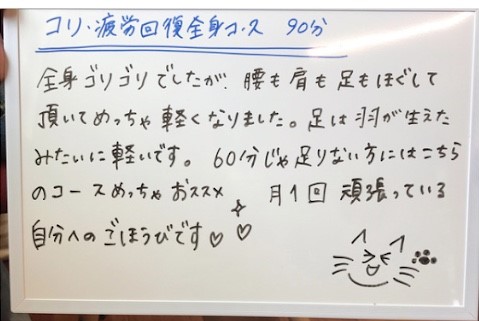 コリ・疲労回復全身コース 90分
全身ゴリゴリでしたが、腰も肩も足もほぐして
頂いてめっちゃ軽くなりました。足は羽が生えた
みたいに軽いです。 60分じゃ足りない方にはこちら
のコースめっちゃおススメ 月1回 頑張っている
自分へのごほうびです♡♡